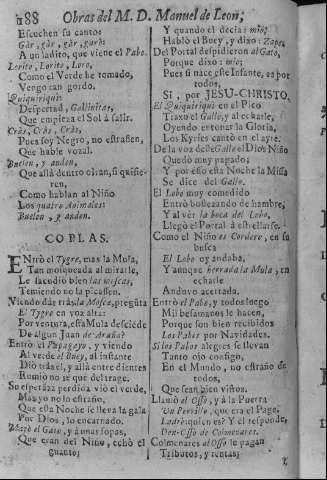 188 Obras del M. D. Manuel de Leon;
Escuchen su canto:
Gàr, gàr, gàr, garò:
A un ladito, que viene el Pabo.
Lorito, Lorito, Loro,
Como el Verde he tomado,
Vengo tan gordo.
Quiquiriqui:
Despertad, Gallinitas,
Que empieza el Sol à salir.
Cràs, Cràs, Cràs,
Pues soy Negro, no estrañen,
Que hable vozal.
Buelen, y anden,
Que allà dentro oiran, si quisie-
ren,
Como hablan al Niño
Los quatro Animales:
Buelen, y anden.
COPLAS.
ENtrò el Tygre, mas la Mula,
Tan moiqueada al mirarle,
Le sacudiò bien las moscas,
Temiendo no la picassen.
Viendo dàr tràs la Mosca, pregũta
El Tygre en voz alta:
Por ventura, esta Mula desciẽde
De algun Juan de Araña?
Entrò el Papagayo, y viendo
Al verde el Buey, al instante
Diò tràs el, y allà entre dientes
Rumiò no sè què de trage.
Su esperãza perdida viò el verde,
Mas yo no lo estraño,
Que esta Noche se lleva la gala
Por Dios, lo encarnado.
Mayò el Gato, y à unas sopas,
Que eran del Niño, echò el
guante;
Y quando el decia: mio;
Hablò el Buey, y dixo: Zape.
Del Portal despidieron al Gato,
Porque dixo: mio;
Pues si nace este Infante, es por
todos,
SI, por JESU-CHRISTO.
El Quiquiriqui en el Pico
Traxo el Gallo, y al echarle,
Oyendo entonar la Gloria,
Los Kyries cantò en el ayre.
De la voz desse Gallo el Dios Niño
Quedò muy pagado;
Y por esso esta Noche la Missa
Se dice del Gallo.
El Lobo muy comedido
Entrò bostezando de hambre,
Y al vèr la boca del Lobo,
Llegò el Portal à estrellarse.
Como el Niño es Cordero, en su
busca
El Lobo oy andaba,
Y aunque herrada la Mula, en
echarle
Anduvo acertada.
Entrò el Pabo, y todos luego
Mil besamanos le hacen,
Porque son bien recibidos
Los Pabos por Navidades.
Si los Pabos alegres se llevan
Tanto ojo consigo,
En el Mundo, no estrañe de
todos,
Que sean bien vistos.
Llamò el Osso, y à la Puerta
Un Perrillo, que era el Page,
Ladrò: quien es? Y el responde,
Don-Osso de Colmenares.
Colmenares al Osso le pagan
Tributos, y rentas;